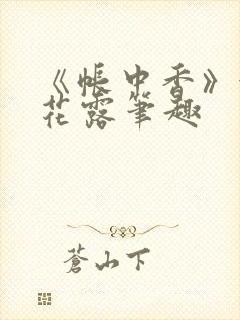 《帐中香》
花露笔趣
苍山下